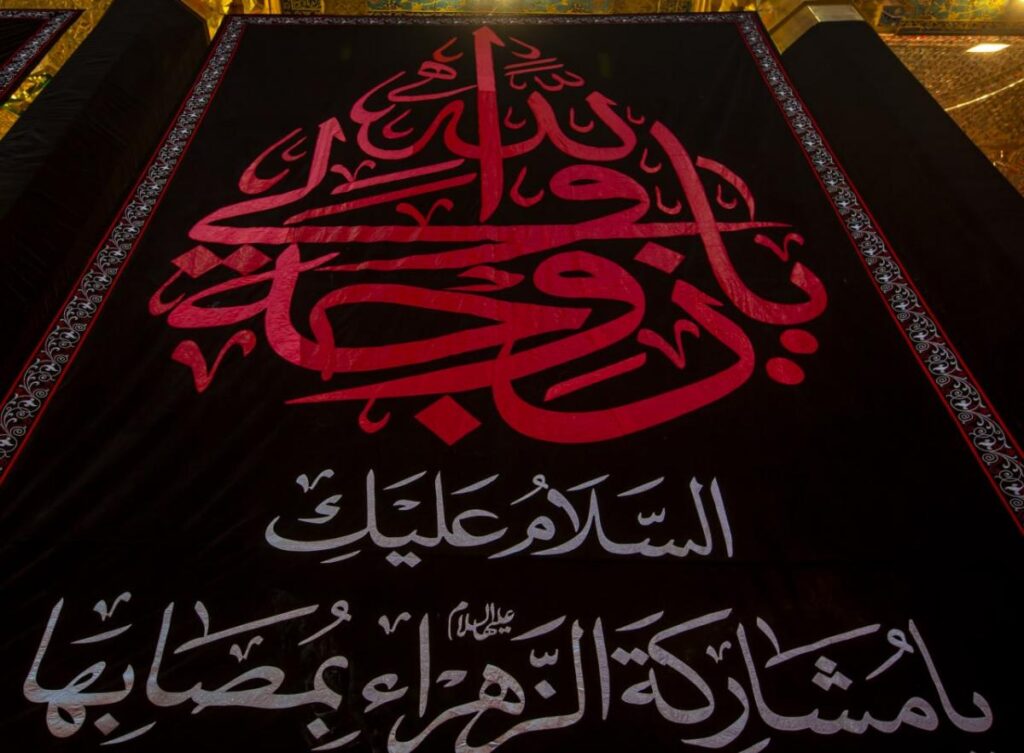 يا زوجة ولي الله
السَّلَامُ عَلَيْكِ
يامُشَارِكَةَ الزَّهْرَاءِ عليها السلام بِمُصَابِهَا